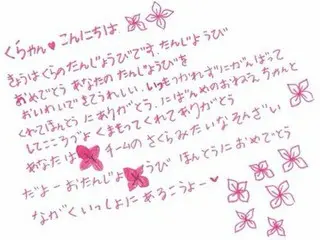 くらやん♥こんにちは
きょうはくらのたんじょうびです.たんじょうび
おめでとう あなたの たんじょうびを
おいわいできてうれしい.いつもつかれずにがんばって
くれてほんとうにありがとう.にばんめのおねえちゃんと
してこころづよくまもってくれてありがとう
あなたは チームのさくらみたいなそんざい
だよーおたんじょ うび ほんとうにおめでとう
ながくいっしょに あるこうよー♥